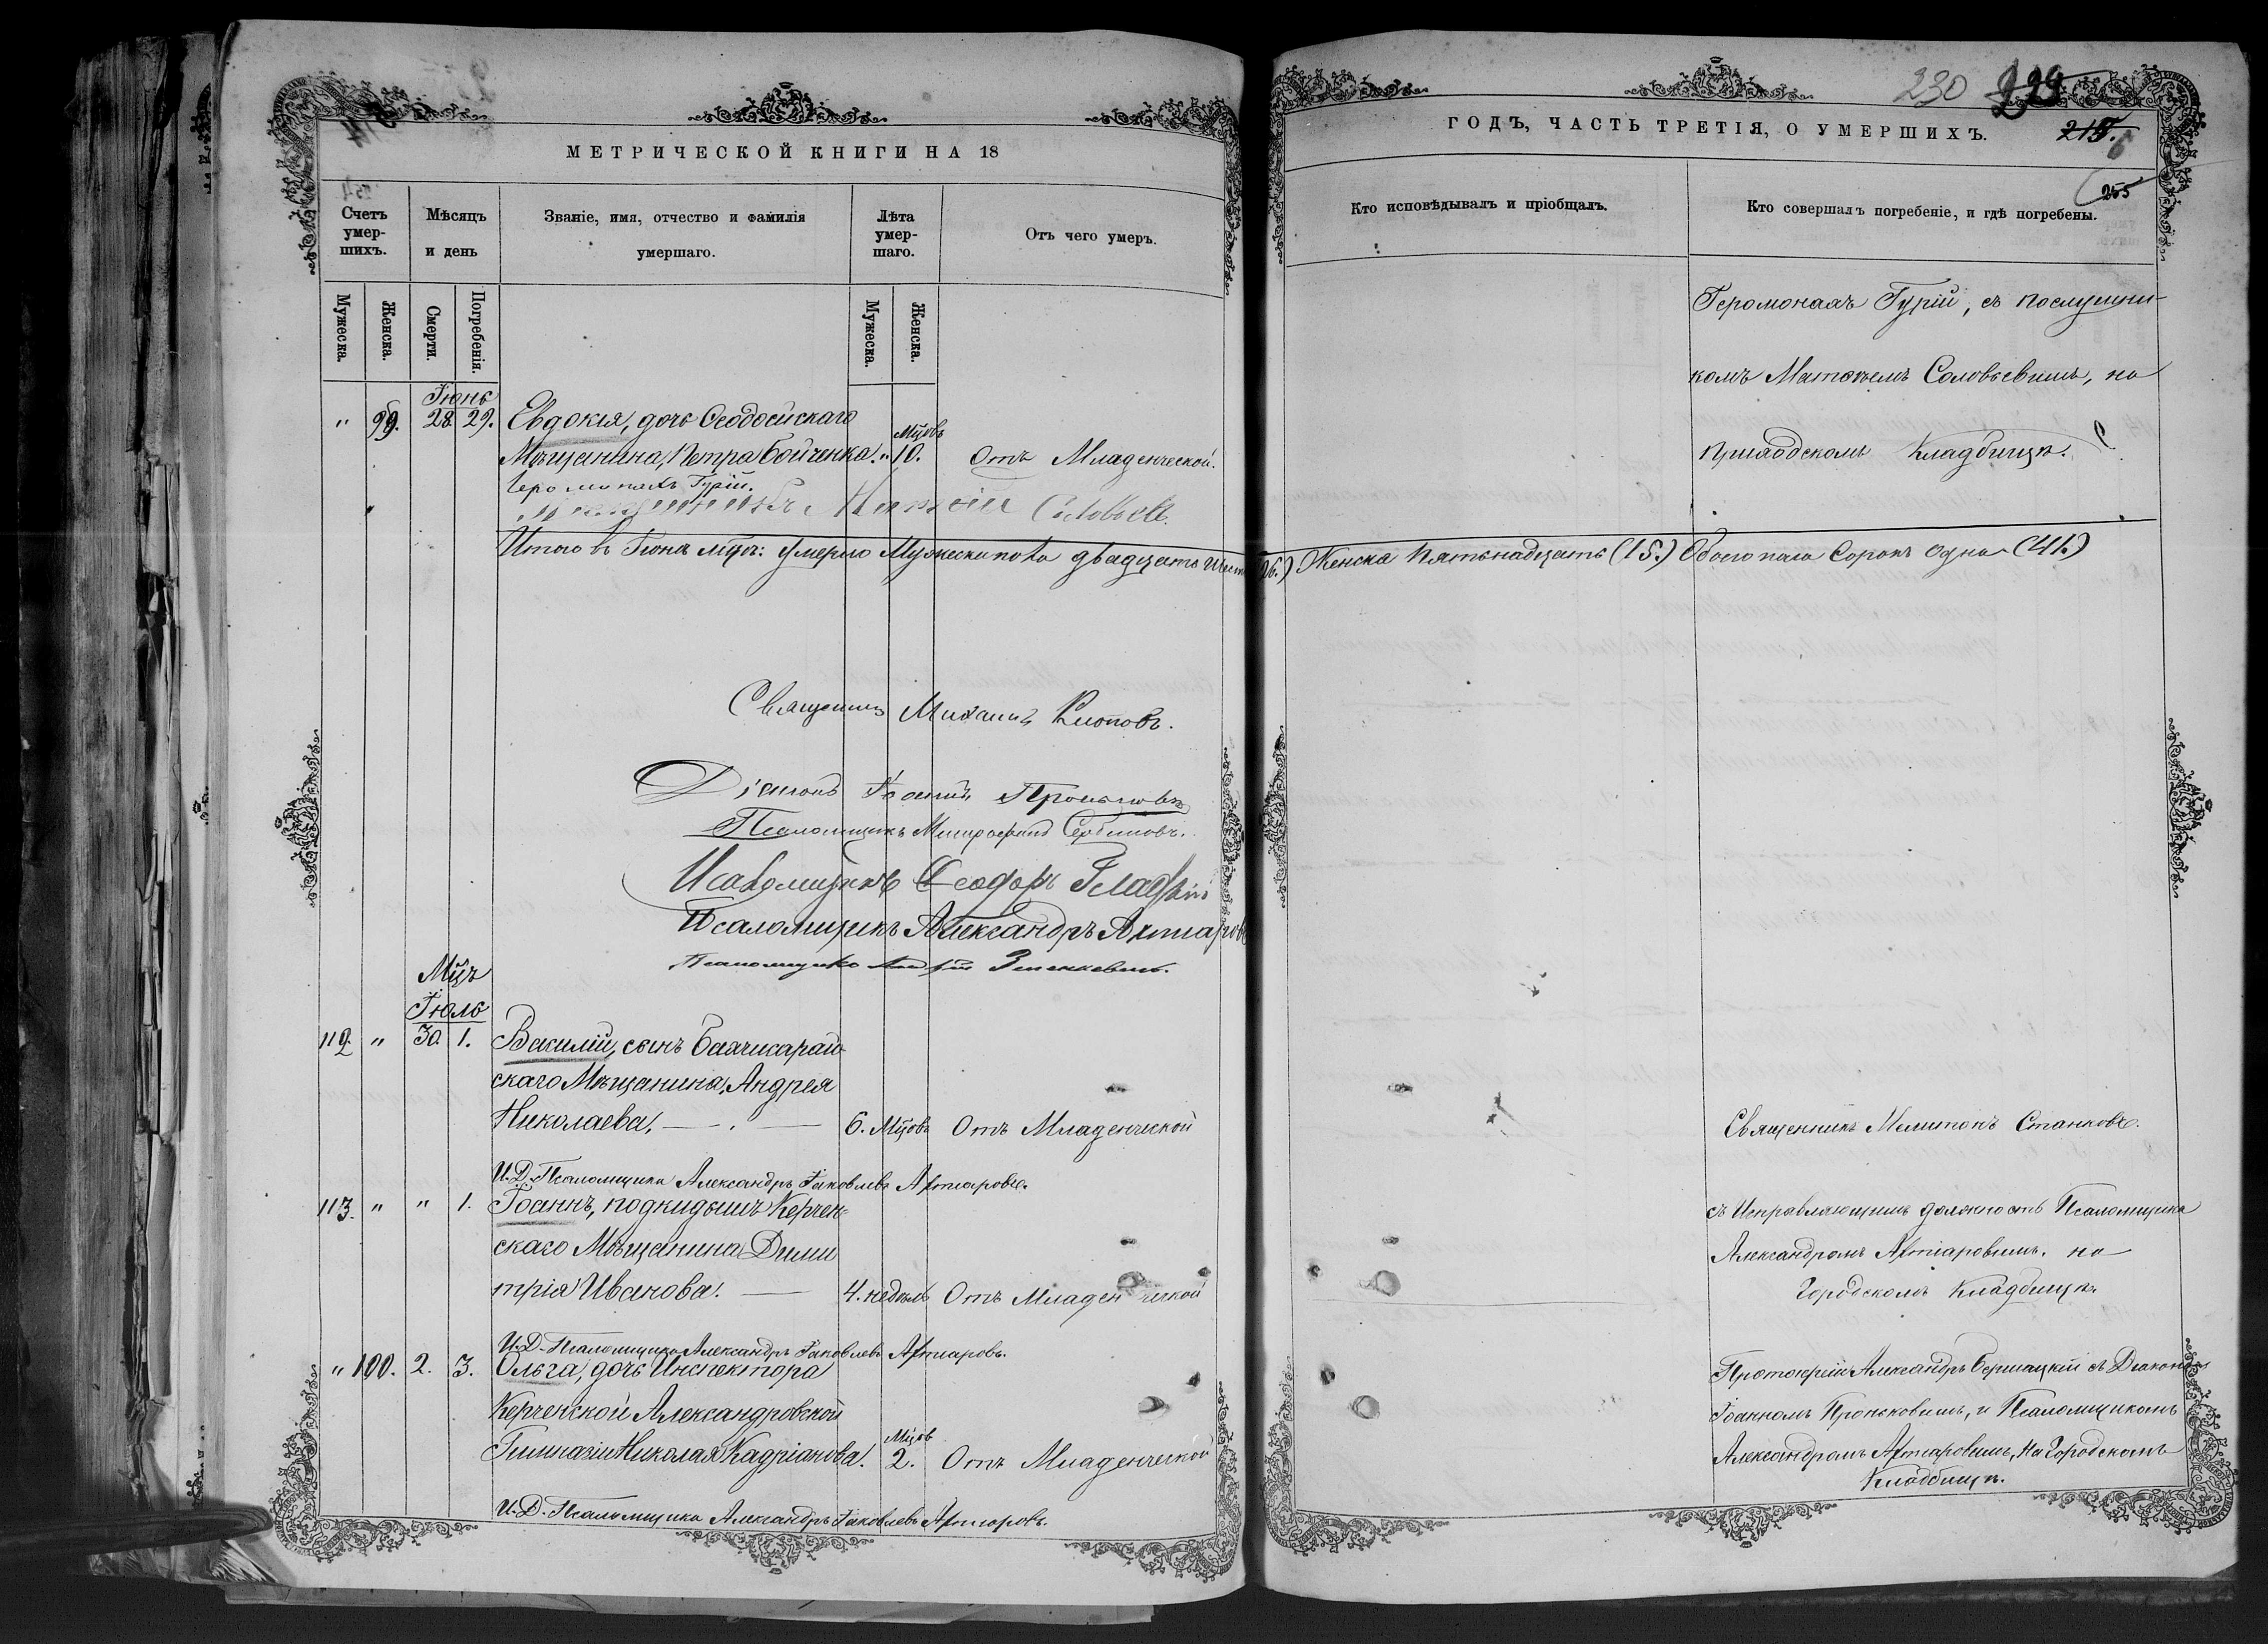 230 229
215.
6
255
МЕТРИЧЕСКОЙ КНИГИ НА 18
ГОДЪ, ЧАСТЬ ТРЕТІЯ, О УМЕРШИХЪ.
Счетъ умершихъ.
Мѣсяцъ и день
Званіе, имя, отчество и фамилія умершаго.
Лѣта умершаго.
Отъ чего умеръ.
Кто исповѣдывалъ и пріобщалъ.
Кто совершалъ погребеніе, и гдѣ погребены.
Мужеска.
Женска.
Смерти.
Погребенія.
Мужеска.
Женска.
Іюнь
" 99. 28. 29. Евдокія, дочь Ѳеодосійскаго
Мѣщанина, Петра Бойченка. " Мцовъ 10. Отъ Младенческой.
Іеромонахъ Гурій.
Соловьев
Іеромонахъ Гурій, съ послушни-
комъ Матвѣемъ Соловьевымъ, на
приходскомъ Кладбищѣ.
Итого въ Іюнѣ мцѣ: Умерло Мужеска пола двадцать шесть (26.) Женска Пятьнадцать (15.) Обоего пола Сорокъ одна (41.)
Священникъ Михаилъ Клоповъ.
Діаконъ Іоаннъ Проньковъ
Псаломщикъ Митрофанъ Сербиновъ.
Псаломщикъ Ѳеодоръ Гладкій
Псаломщикъ Александръ Ахтіаровъ
Псаломщикъ
Мцъ
Іюль
112 " 30. 1. Василій, сынъ Бахчисарай-
скаго Мѣщанина, Андрея
Николаева. 6. Мцовъ Отъ Младенческой
И.Д. Псаломщика Александръ Іаковлевъ Ахтіаровъ.
Священникъ Мелитонъ Станковъ.
113. " " 1. Іоаннъ, подкидышъ Керчен-
скаго Мѣщанина Дими
трія Иванова. 4. недѣль Отъ Младенческой
И.Д. Псаломщика Александръ Іаковлевъ Ахтіаровъ.
съ Исправляющимъ должность Псаломщика
Александромъ Ахтіаровымъ. на
Городскомъ Кладбищѣ.
" 100. 2. 3. Ольга, дочь Инспектора
Керченской Александровской
Гимназіи Николая Кадріанова. Мцов 2. Отъ Младенческой
И.Д. Псаломщика Александръ Іаковлевъ Ахтіаровъ.
Протоіерей Александръ съ Діакономъ
Іоанномъ Проньковымъ, и Псаломщикомъ
Александромъ Ахтіаровымъ, на Городскомъ
Кладбищѣ.